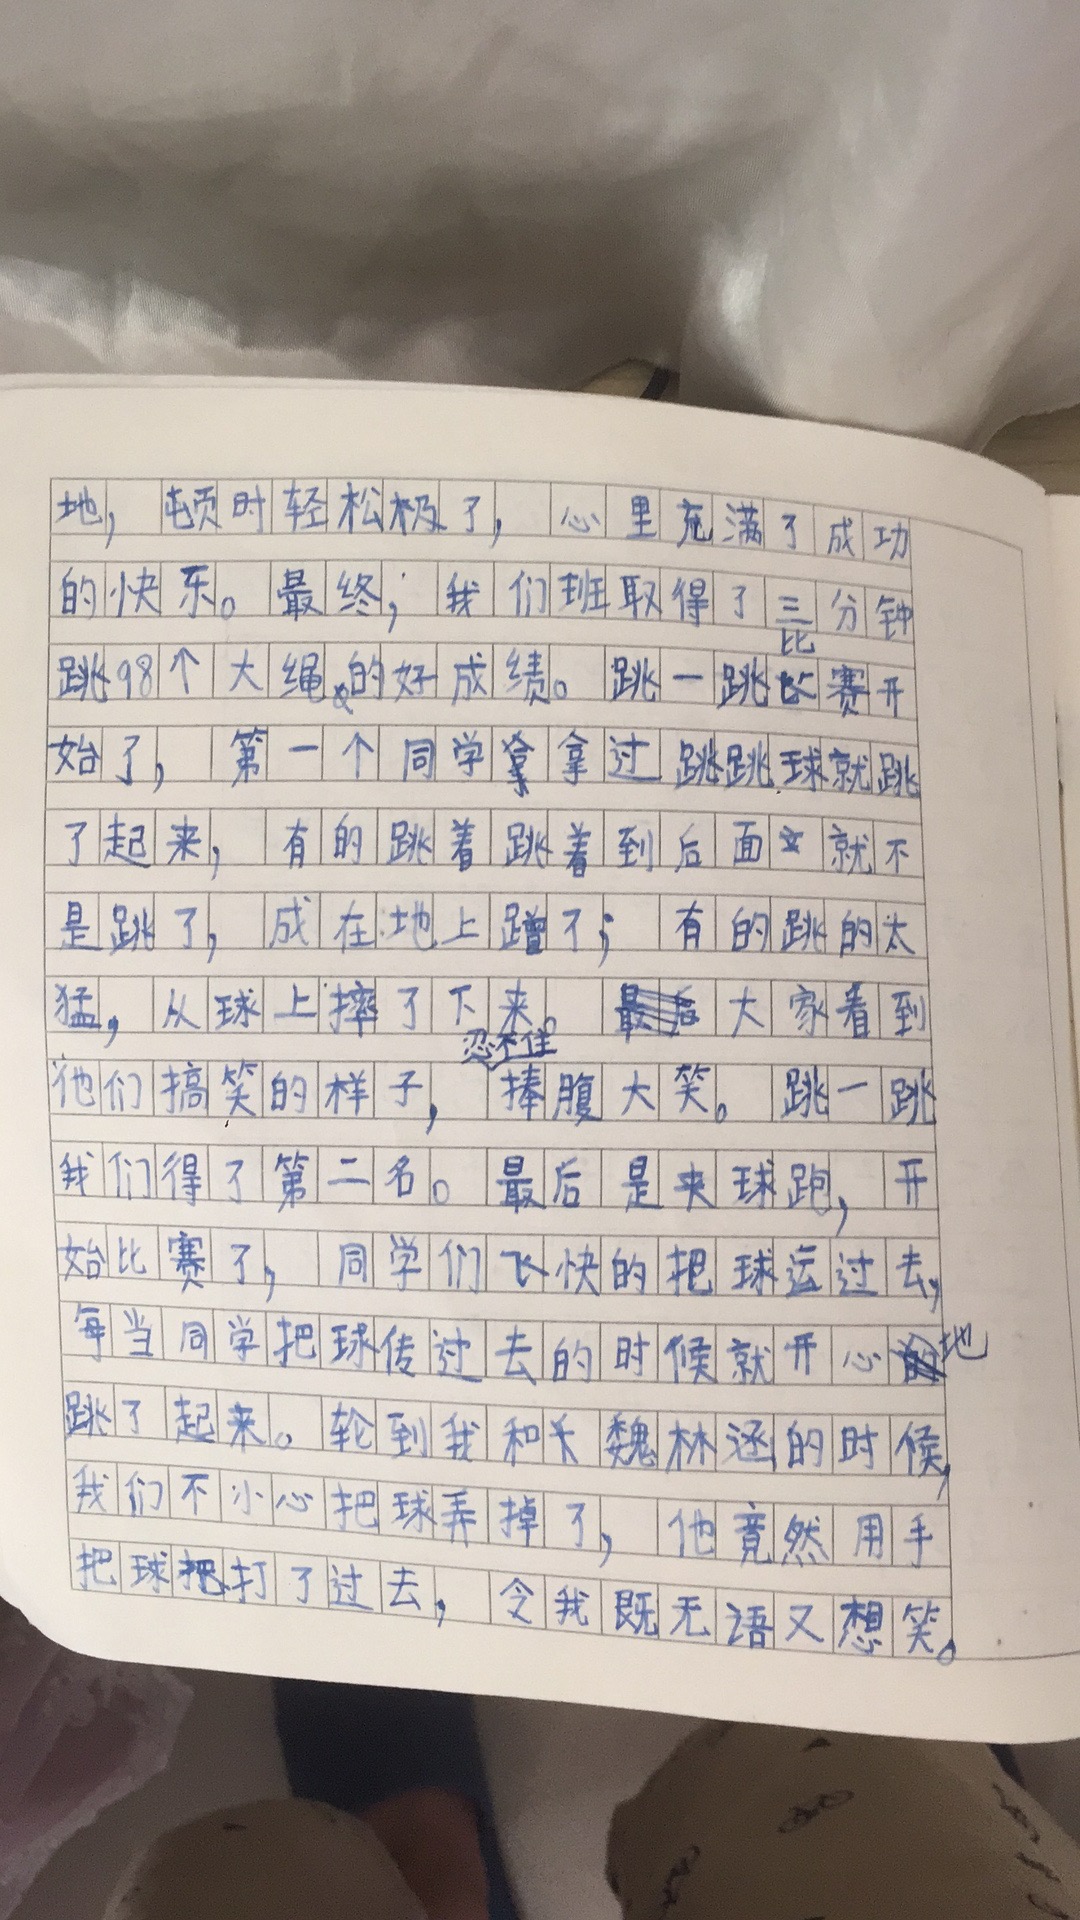 地，顿时轻松极了，心里充满了成功
的快乐。最终，我们班取得了三分钟
跳98个大绳的好成绩。跳一跳比赛开
始了，第一个同学拿拿过跳跳球就跳
了起来，有的跳着跳着到后面就不
是跳了，成在地上蹭了；有的跳的太
猛，从球上摔了下来。大家看到
他们搞笑的样子，忍不住捧腹大笑。跳一跳
我们得了第二名。最后是夹球跑，开
始比赛了，同学们飞快的把球运过去，
每当同学把球传过去的时候就开心地
跳了起来。轮到我和魏林涵的时候，
我们不小心把球弄掉了，他竟然用手
把球打了过去，令我既无语又想笑。